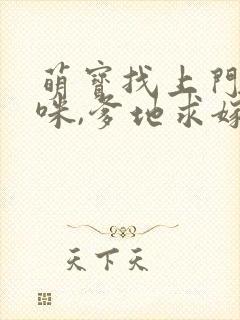 萌寶找上門
咪,爹地求嫁
天下天